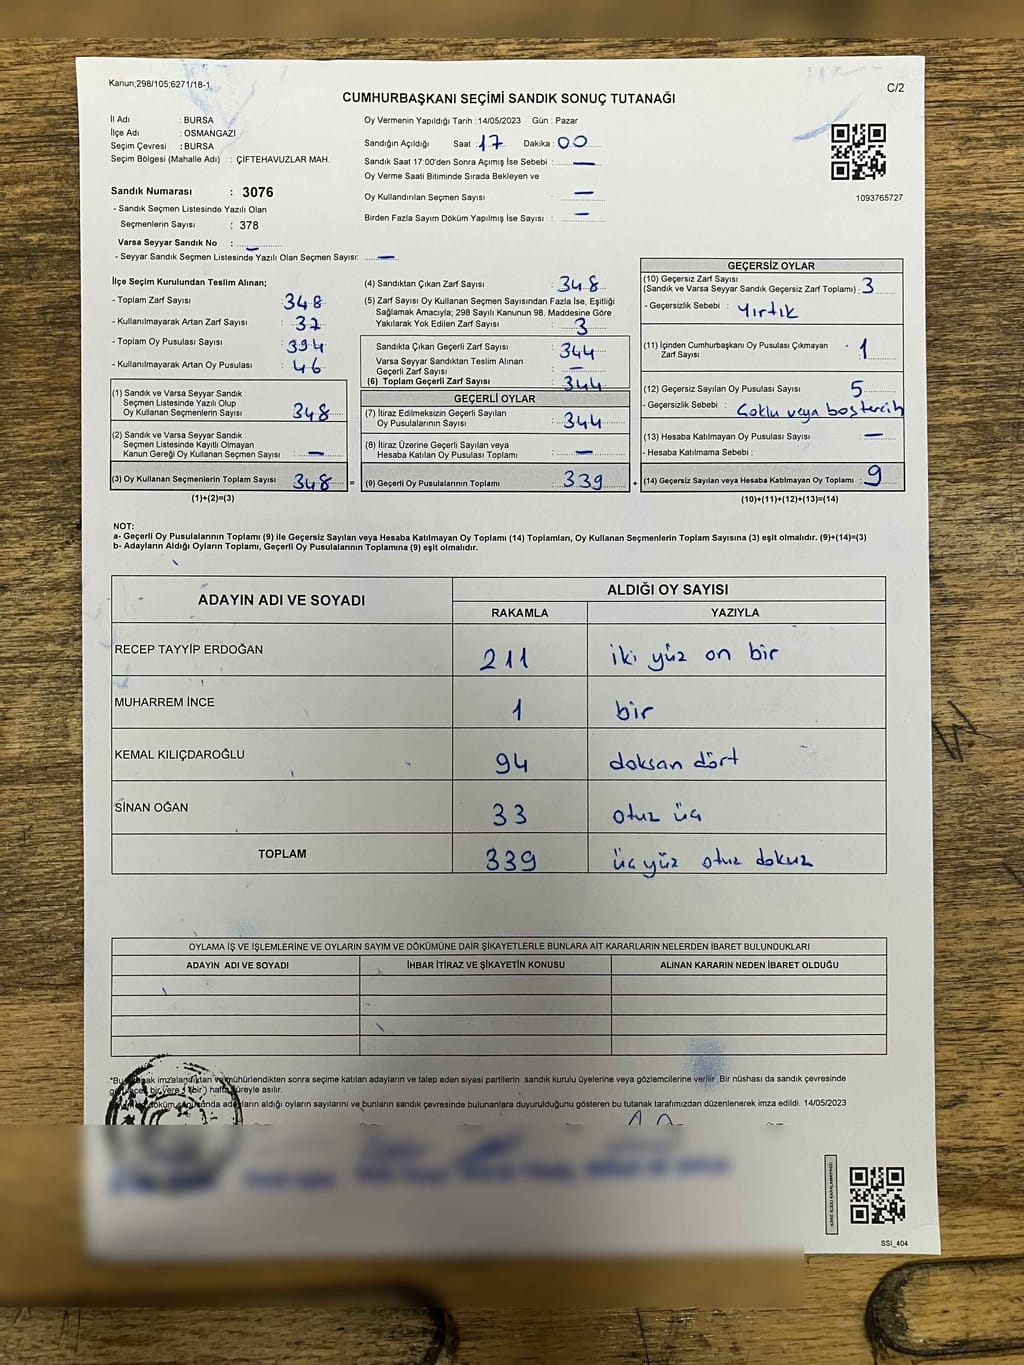 Kanun;298/105;6271/18-1
C/2
CUMHURBAŞKANI SEÇİMİ SANDIK SONUÇ TUTANAĞI
İl Adı : BURSA
İlçe Adı : OSMANGAZİ
Seçim Çevresi : BURSA
Seçim Bölgesi (Mahalle Adı) : ÇİFTEHAVUZLAR MAH.
Sandık Numarası : 3076
- Sandık Seçmen Listesinde Yazılı Olan
Seçmenlerin Sayısı : 378
Varsa Seyyar Sandık No : -
- Seyyar Sandık Seçmen Listesinde Yazılı Olan Seçmen Sayısı: -
Oy Vermenin Yapıldığı Tarih : 14/05/2023 Gün : Pazar
Sandığın Açıldığı Saat : 17 Dakika : 00
Sandık Saat 17:00'den Sonra Açımış İse Sebebi : -
Oy Verme Saati Bitiminde Sırada Bekleyen ve
Oy Kullandırılan Seçmen Sayısı -
Birden Fazla Sayım Döküm Yapılmış İse Sayısı : -
1093765727
İlçe Seçim Kurulundan Teslim Alınan;
- Toplam Zarf Sayısı : 348
- Kullanılmayarak Artan Zarf Sayısı : 32
- Toplam Oy Pusulası Sayısı : 394
- Kullanılmayarak Artan Oy Pusulası : 46
(1) Sandık ve Varsa Seyyar Sandık
Seçmen Listesinde Yazılı Olup
Oy Kullanan Seçmenlerin Sayısı : 348
(2) Sandık ve Varsa Seyyar Sandık
Seçmen Listesinde Kayıtlı Olmayan
Kanun Gereği Oy Kullanan Seçmen Sayısı : -
(3) Oy Kullanan Seçmenlerin Toplam Sayısı : 348 =
(1)+(2)=(3)
(4) Sandıktan Çıkan Zarf Sayısı : 348
(5) Zarf Sayısı Oy Kullanan Seçmen Sayısından Fazla İse, Eşitliği
Sağlamak Amacıyla; 298 Sayılı Kanunun 98. Maddesine Göre
Yakılarak Yok Edilen Zarf Sayısı : 3
Sandıkta Çıkan Geçerli Zarf Sayısı : 344
Varsa Seyyar Sandıktan Teslim Alınan
Geçerli Zarf Sayısı : -
(6) Toplam Geçerli Zarf Sayısı : 344
GEÇERLİ OYLAR
(7) İtiraz Edilmeksizin Geçerli Sayılan
Oy Pusulalarının Sayısı : 344
(8) İtiraz Üzerine Geçerli Sayılan veya
Hesaba Katılan Oy Pusulası Toplamı : -
(9) Geçerli Oy Pusulalarının Toplamı : 339 +
GEÇERSİZ OYLAR
(10) Geçersiz Zarf Sayısı
(Sandık ve Varsa Seyyar Sandık Geçersiz Zarf Toplamı) : 3
- Geçersizlik Sebebi : Yırtık
(11) İçinden Cumhurbaşkanı Oy Pusulası Çıkmayan
Zarf Sayısı : 1
(12) Geçersiz Sayılan Oy Pusulası Sayısı 5
- Geçersizlik Sebebi : Çoklu veya boş tercih
(13) Hesaba Katılmayan Oy Pusulası Sayısı : -
- Hesaba Katılmama Sebebi :
(14) Geçersiz Sayılan veya Hesaba Katılmayan Oy Toplamı : 9
(10)+(11)+(12)+(13)=(14)
NOT:
a- Geçerli Oy Pusulalarının Toplamı (9) ile Geçersiz Sayılan veya Hesaba Katılmayan Oy Toplamı (14) Toplamları, Oy Kullanan Seçmenlerin Toplam Sayısına (3) eşit olmalıdır. (9)+(14)=(3)
b- Adayların Aldığı Oyların Toplamı, Geçerli Oy Pusulalarının Toplamına (9) eşit olmalıdır.
ADAYIN ADI VE SOYADI
ALDIĞI OY SAYISI
RAKAMLA YAZIYLA
RECEP TAYYİP ERDOĞAN 211 iki yüz on bir
MUHARREM İNCE 1 bir
KEMAL KILIÇDAROĞLU 94 doksan dört
SİNAN OĞAN 33 otuz üç
TOPLAM 339 üç yüz otuz dokuz
OYLAMA İŞ VE İŞLEMLERİNE VE OYLARIN SAYIM VE DÖKÜMÜNE DAİR ŞİKAYETLERLE BUNLARA AİT KARARLARIN NELERDEN İBARET BULUNDUKLARI
ADAYIN ADI VE SOYADI İHBAR İTİRAZ VE ŞİKAYETİN KONUSU ALINAN KARARIN NEDEN İBARET OLDUĞU
imzalandıktan ve mühürlendikten sonra seçime katılan adayların ve talep eden siyasi partilerin sandık kurulu üyelerine veya gözlemcilerine verilir. Bir nüshası da sandık çevresinde
bir yere 1 (bir) hafta süreyle asılır.
döküm sonucunda adayların aldığı oyların sayılarını ve bunların sandık çevresinde bulunanlara duyurulduğunu gösteren bu tutanak tarafımızdan düzenlenerek imza edildi. 14/05/2023
SSI_404